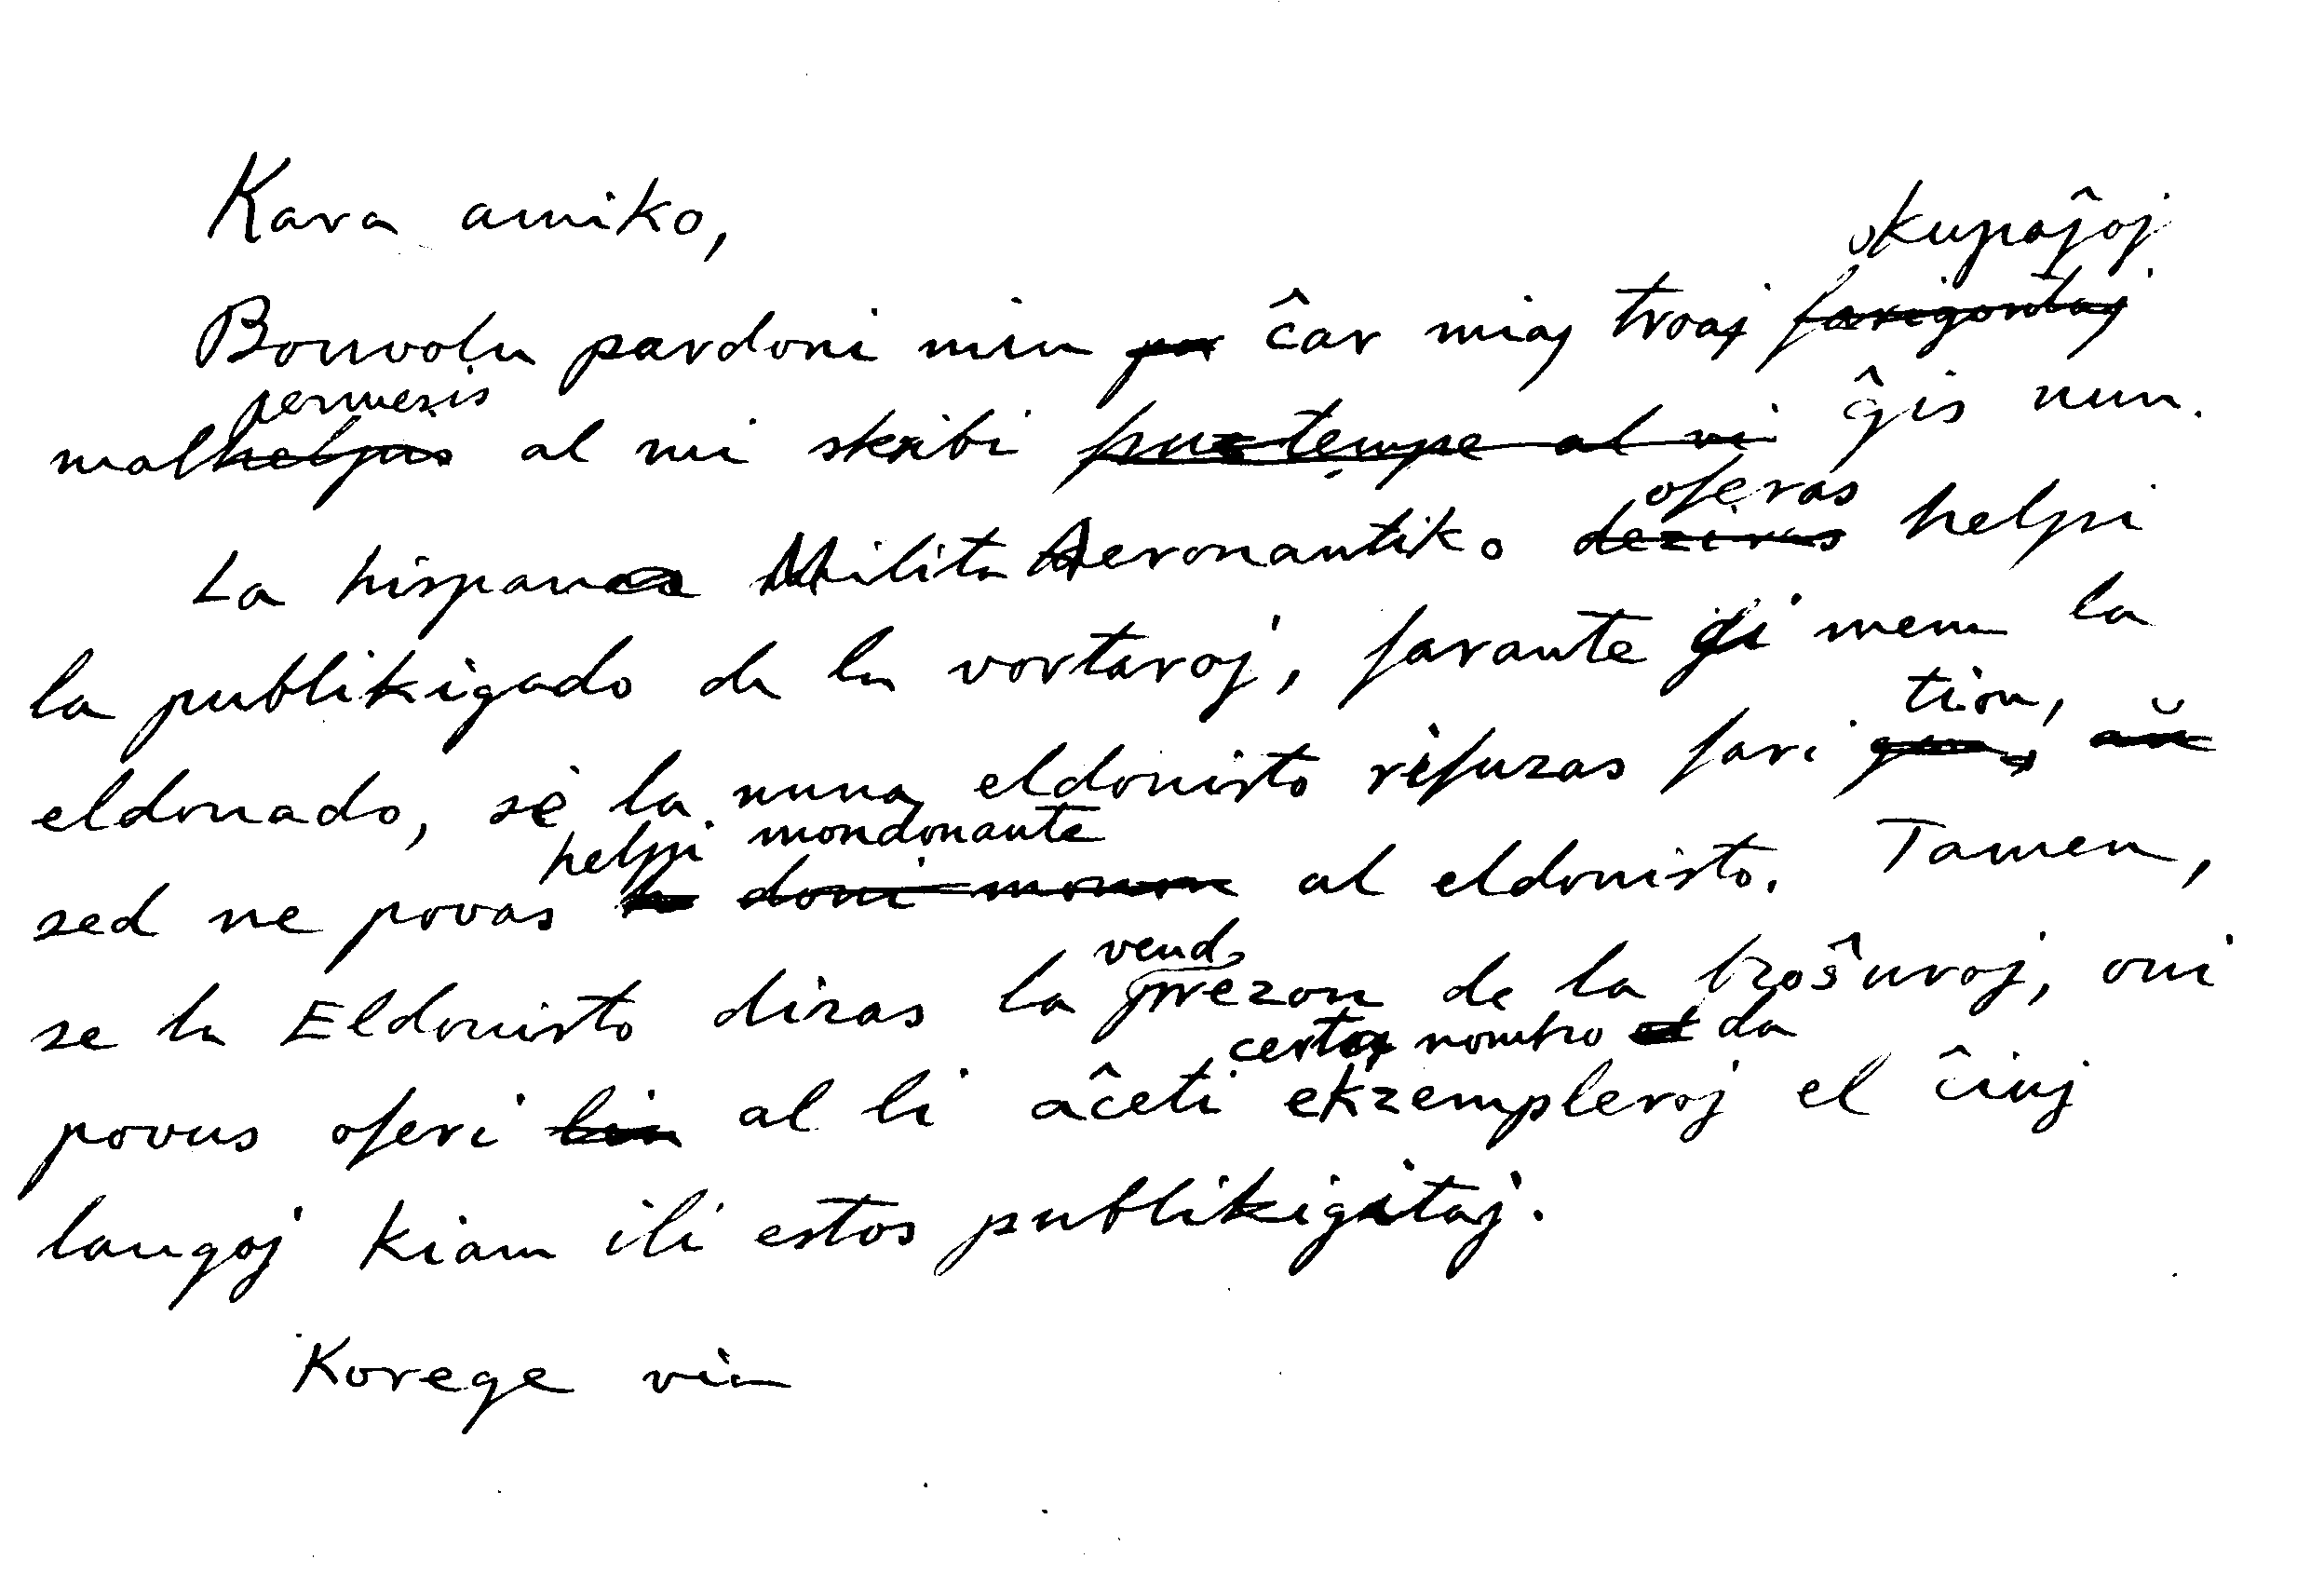 Kara amiko,
okupaĵoj
Bonvolu pardoni min ĉar miaj troaj farigontaj
permesis
malhelpis al mi skribi ĝustempe al vi ĝis nun.
oferas
La hispana Milita Aeronautiko deziras helpi
la publikigado de la vortaroj, farante ĝi mem la
tion,
eldonado, se la nuna eldonisto rifuzas fari aŭ
helpi mondonante
sed ne povas doni monon al eldonisto. Tamen,
vend
se la Eldonisto diras la prezon de la broŝuroj, oni
certa nombro da
povus oferi lin al li aĉeti ekzempleroj el ĉiuj
langoj kiam ili estos publikigitaj.
Korege via